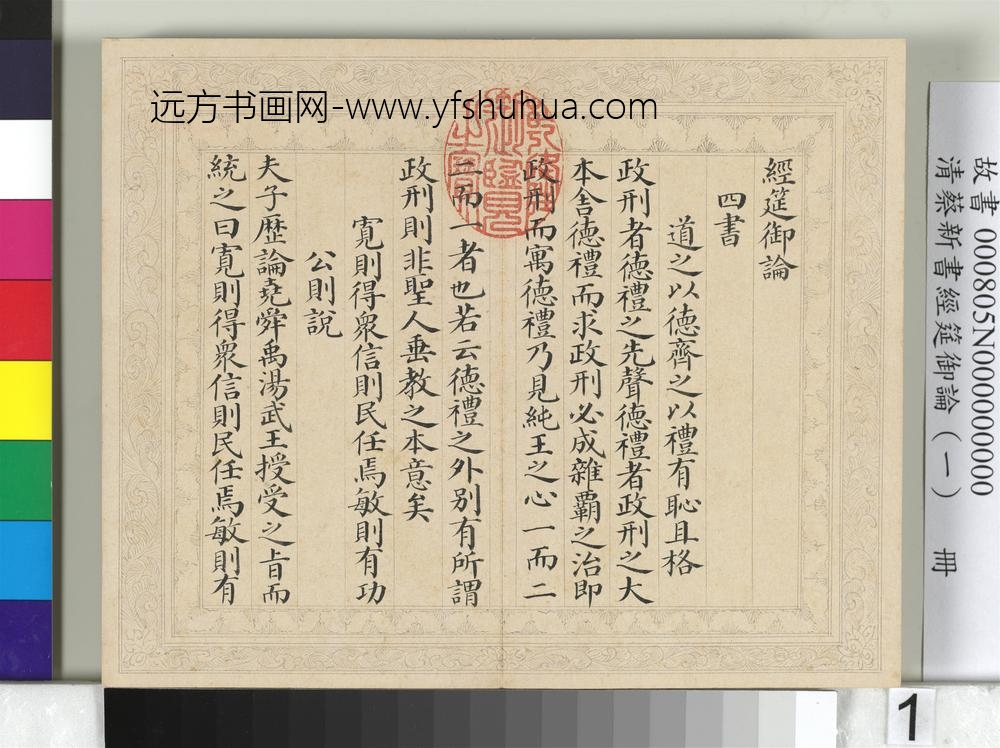 远方书画网-www.yfshuhua.com
經筵御論
四書
道之以德齊之以禮有恥且格
政刑者德禮之先聲德禮者政刑之大
本舍德禮而求政刑必成雜霸之治即
政刑而寓德禮乃見純王之心一而二
二而一者也若云德禮之外别有所謂
政刑則非聖人垂教之本意矣
寬則得衆信則民任焉敏則有功
公則說
夫子歷論堯舜禹湯武王授受之旨而
統之曰寬則得衆信則民任焉敏則有
故書 000805N000000000
清蔡新書經筵御論（一） 冊
1